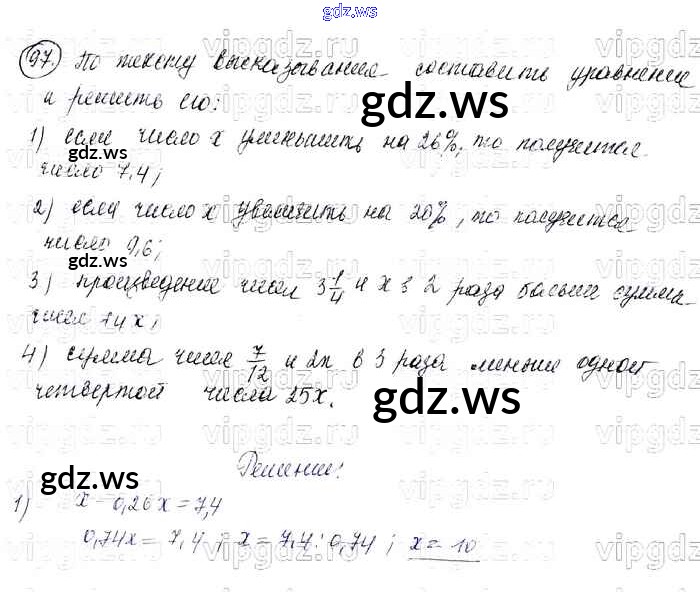 gdz.ws
97. По тексту высказывания составить уравнение
и решить его:
1) если число x уменьшить на 26%, то получится
число 7,4;
2) если число x увеличить на 20%, то получится
число 9,6;
3) произведение чисел 3 1/4 и x в 2 раза больше суммы
чисел 14 x;
4) сумма чисел 7/12 и 2x в 3 раза меньше одной
четвертой числа 25x.
gdz.ws
gdz.ws
gdz.ws
gdz.ws
gdz.ws
Решение:
1) x - 0,26x = 7,4
0,74x = 7,4; x = 7,4 : 0,74; x = 10
vipgdz.ru